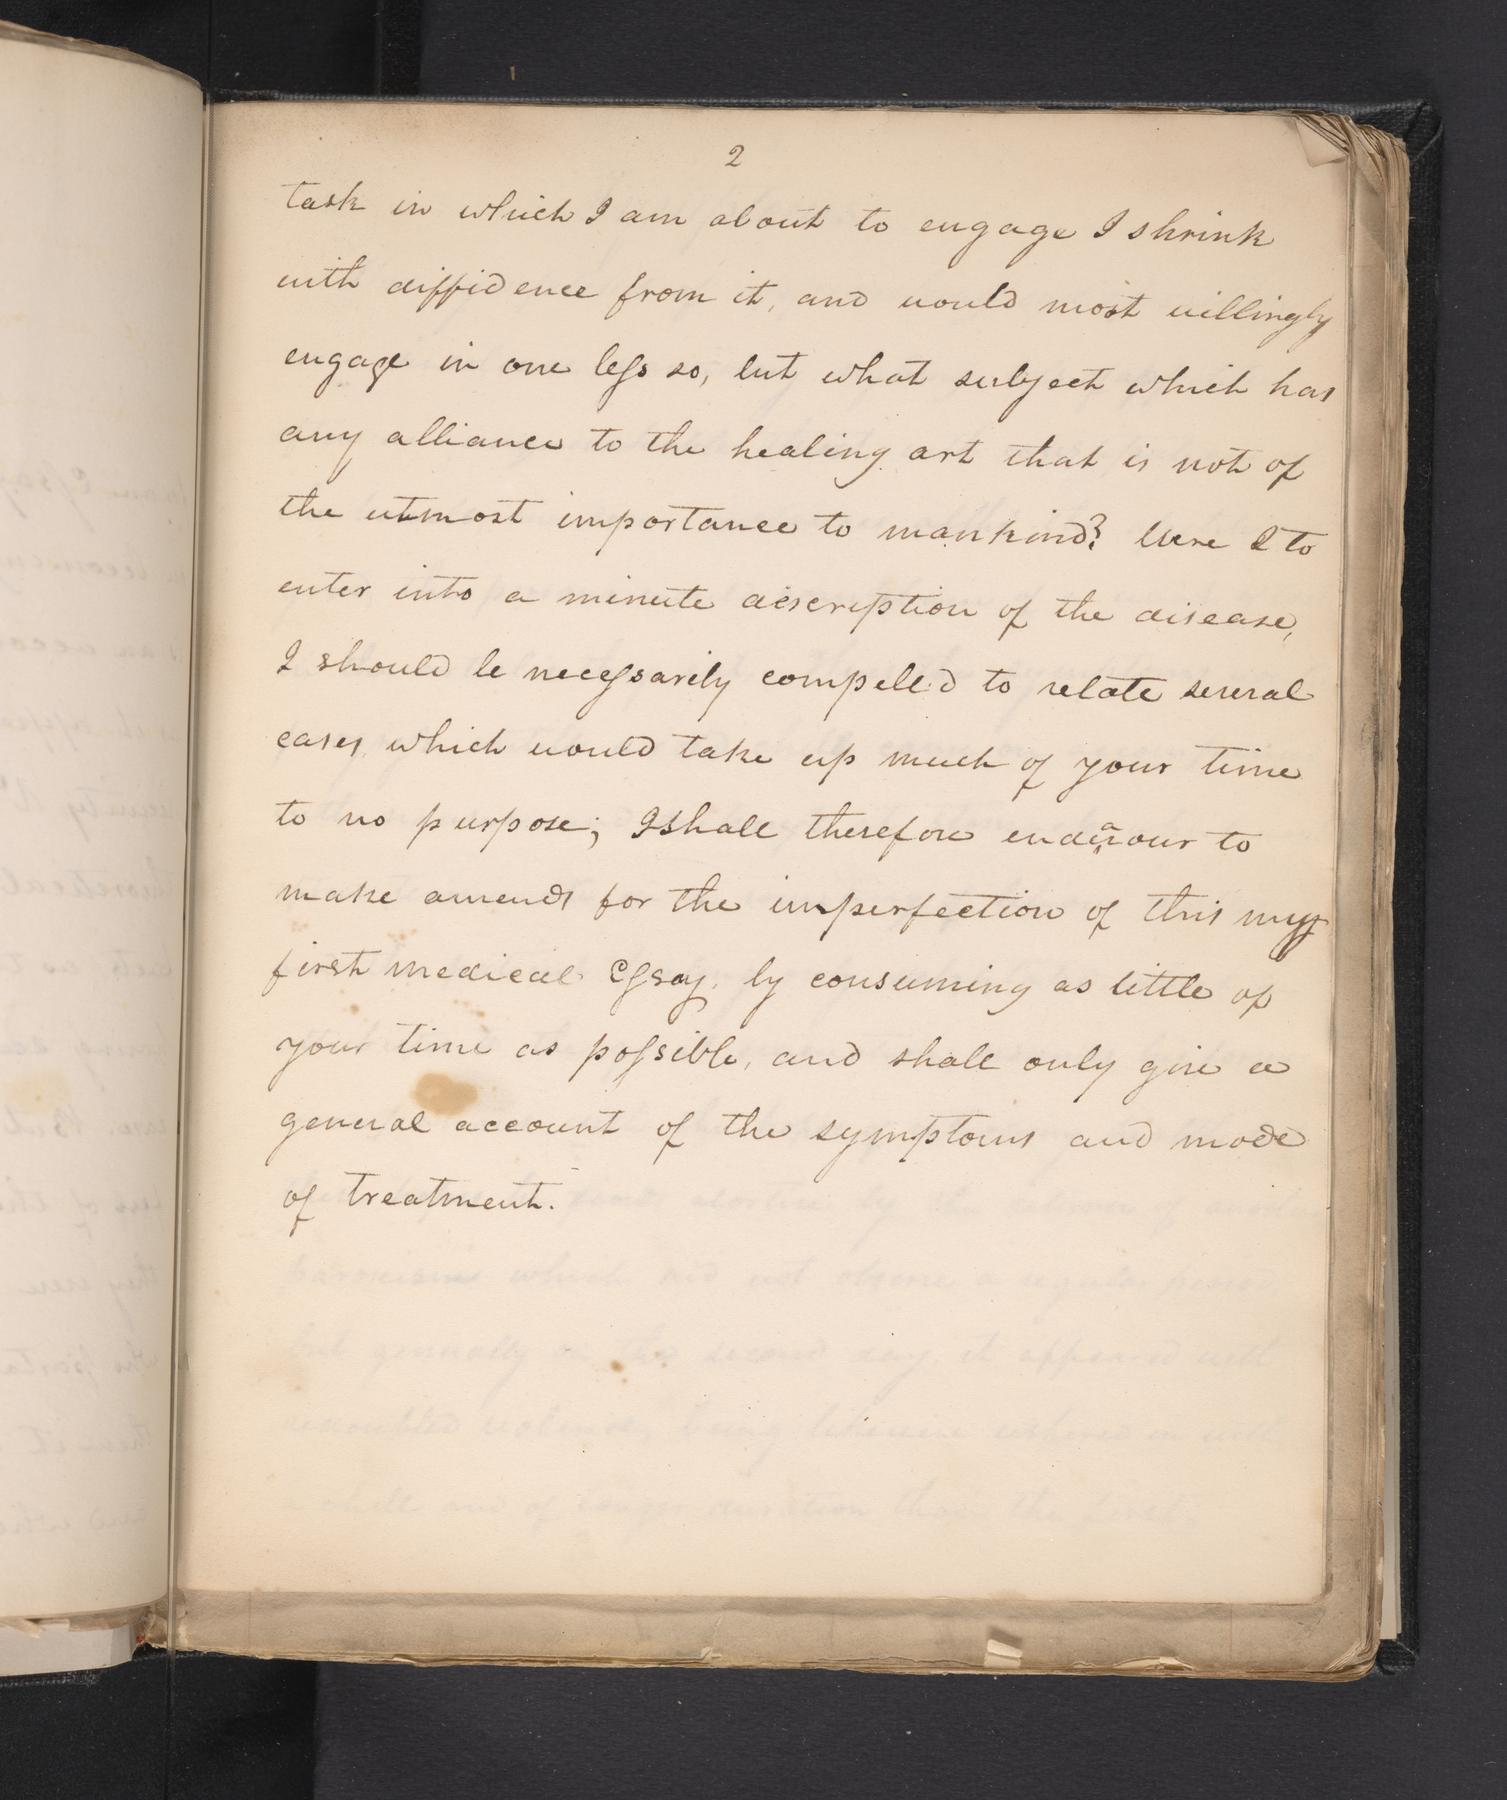 2
task in which I am about to engage I shrink
with diffidence from it, and would most willingly
engage in one less so, but what subject which has
any alliance to the healing art that is not of
the utmost importance to mankind? Were I to
enter into a minute description of the disease,
I should be necessarily compell'd to relate several
cases which would take up much of your time
to no purpose; I shall therefore endeavour to
make amends for the imperfection of this my
first medical Essay, by consuming as little of
your time as possible, and shall only give a
general account of the symptoms and mode
of treatment.